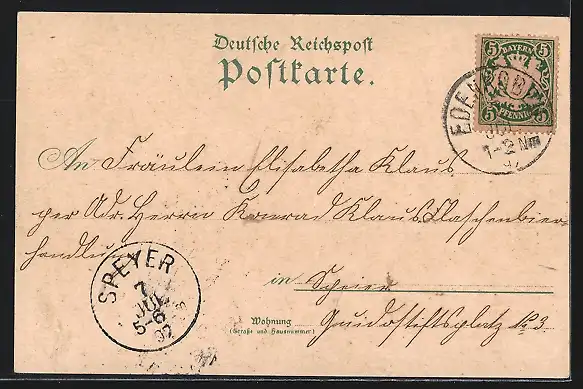 Deutsche Reichspost
Postkarte.
5 BAYERN 5
5 PFENNIG 5
EDEN
1-2 Nm
An Fräulein Elisabetha Klaus
per Adr. Herrn Konrad Klaus Flaschenbier-
handlung
SPEYER
7
JUL
5-6
97
in Speier
Wohnung
(Straße und Hausnummer)
Guidostiftsplatz No 3